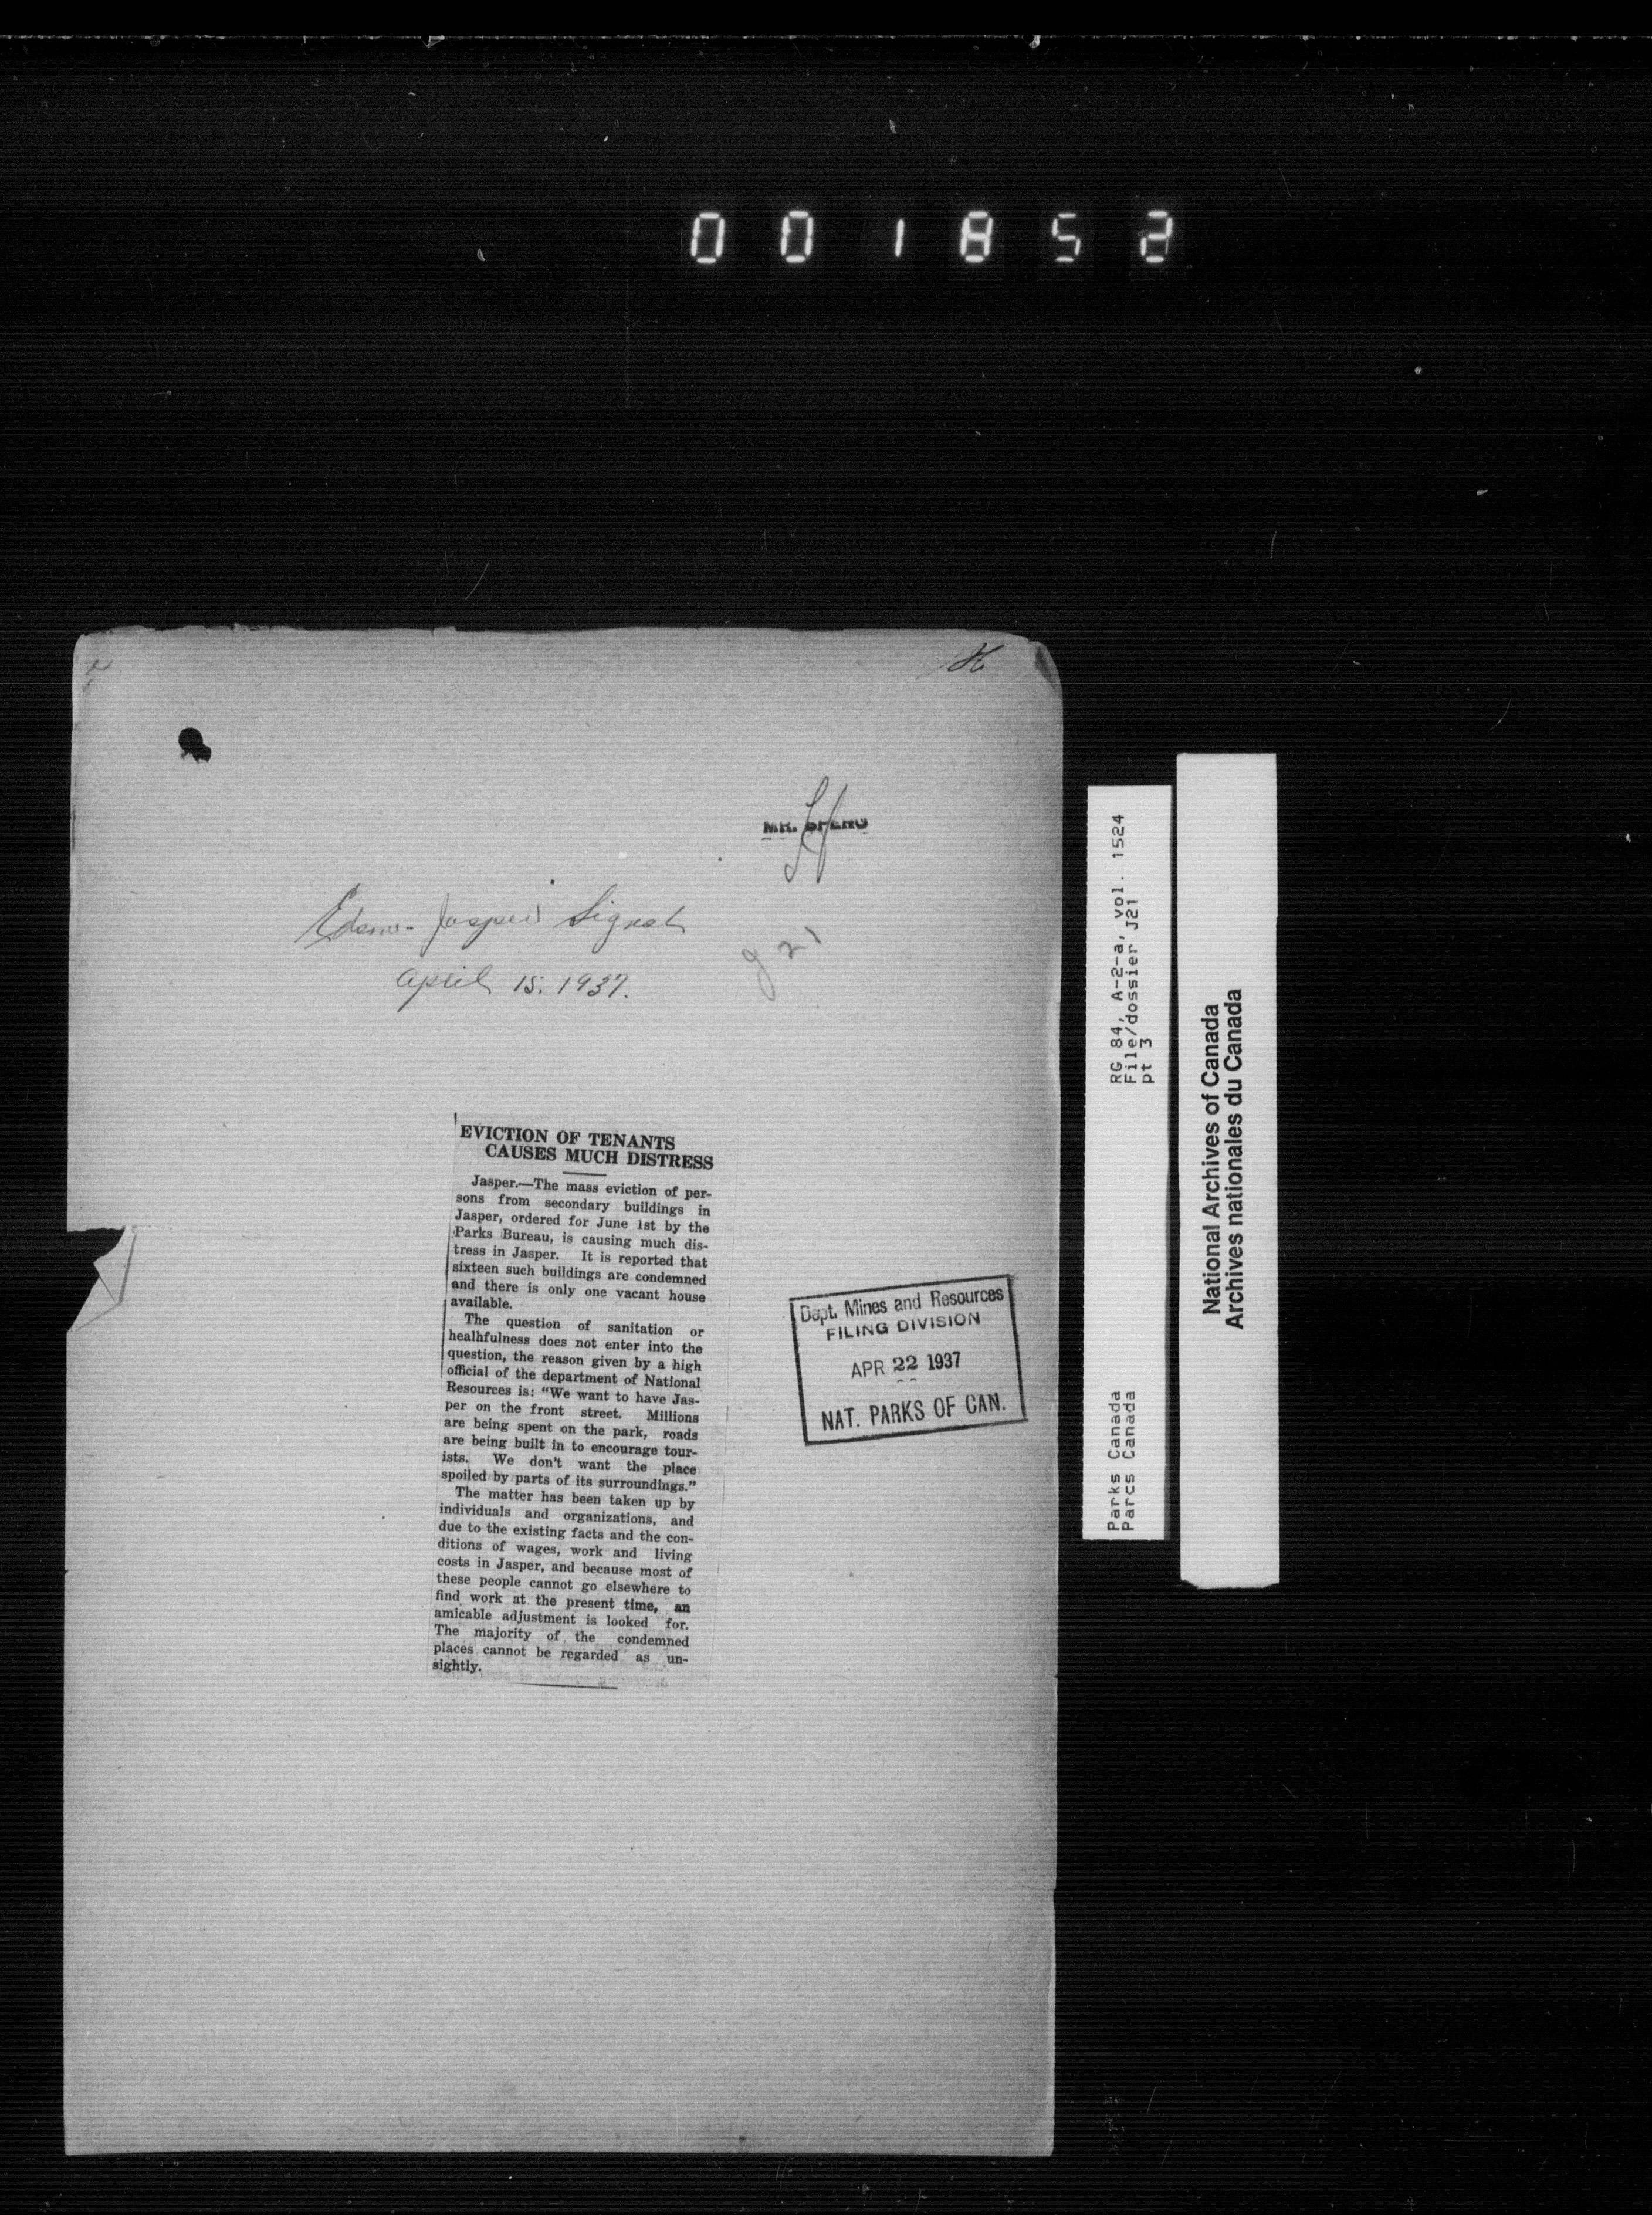 001852
MR. SPERO
Edson-Jasper Signal
April 15. 1937.
J 21
EVICTION OF TENANTS
CAUSES MUCH DISTRESS
Jasper.—The mass eviction of per-
sons from secondary buildings in
Jasper, ordered for June 1st by the
Parks Bureau, is causing much dis-
tress in Jasper. It is reported that
sixteen such buildings are condemned
and there is only one vacant house
available.
The question of sanitation or
healhfulness does not enter into the
question, the reason given by a high
official of the department of National
Resources is: “We want to have Jas-
per on the front street. Millions
are being spent on the park, roads
are being built in to encourage tour-
ists. We don't want the place
spoiled by parts of its surroundings.”
The matter has been taken up by
individuals and organizations, and
due to the existing facts and the con-
ditions of wages, work and living
costs in Jasper, and because most of
these people cannot go elsewhere to
find work at the present time, an
amicable adjustment is looked for.
The majority of the condemned
places cannot be regarded as un-
sightly.
Dept. Mines and Resources
FILING DIVISION
APR 22 1937
NAT. PARKS OF CAN.
RG 84, A-2-a, vol. 1524
File/dossier J21
pt 3
Parks Canada
Parcs Canada
National Archives of Canada
Archives nationales du Canada